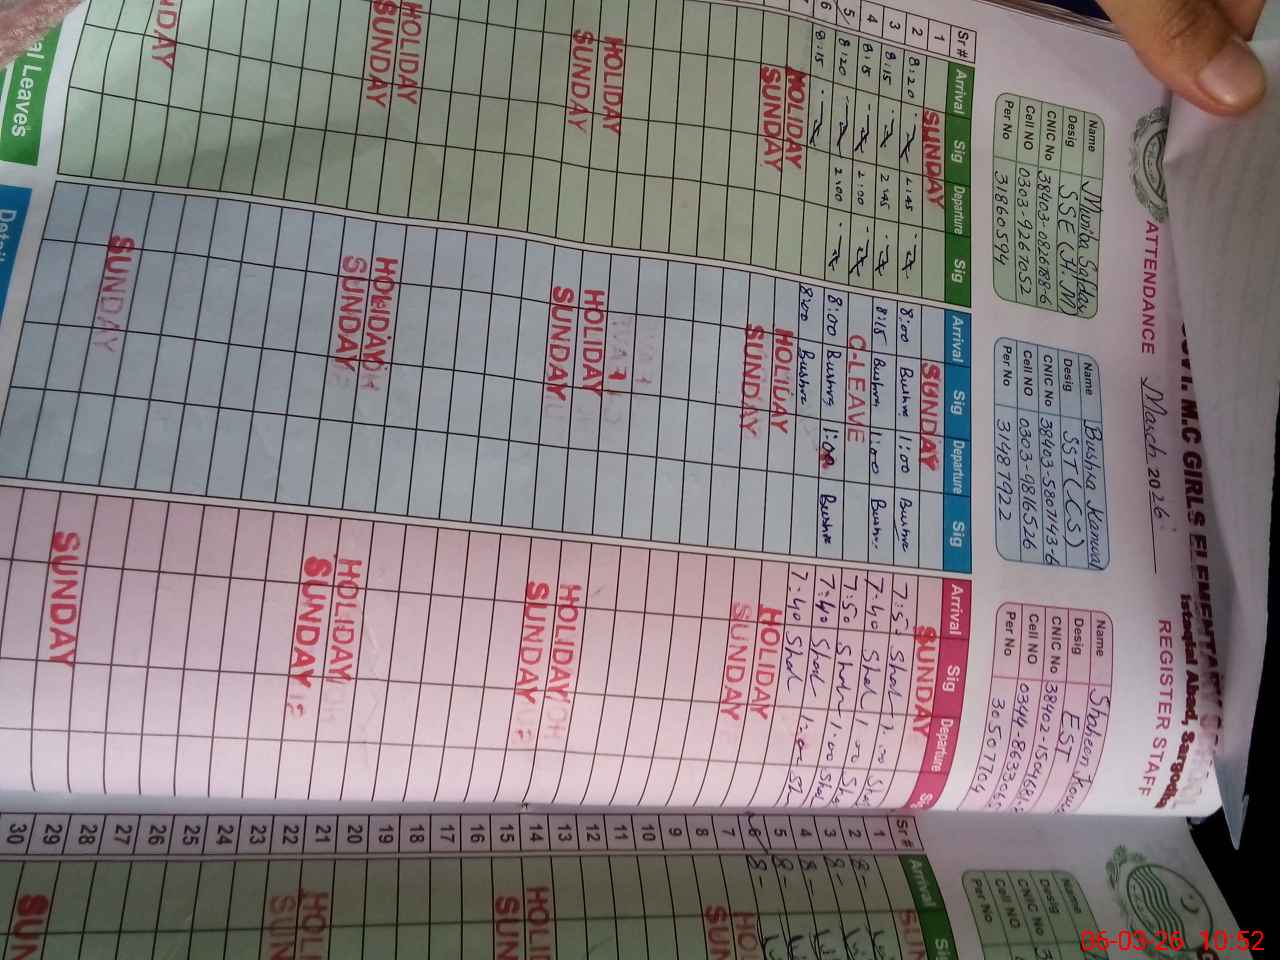 GOVT. M.C GIRLS ELEMENTARY
Istaqlal Abad, Sargodha
ATTENDANCE March 2026 REGISTER STAFF
Name Muniba Safdar
Desig SSE (H.M)
CNIC No 38403-0826788-6
Cell NO 0303-9267052
Per No 31860594
Name Bushra Kanwal
Desig SST (CS)
CNIC No 38403-5807143-6
Cell NO 0303-9816526
Per No 31487922
Name Shaheen
Desig EST
CNIC No 38402-1504681-
Cell NO 0344-863304
Per No 30507704
Sr# Arrival Sig Departure Sig Arrival Sig Departure Sig Arrival Sig Departure
1 SUNDAY SUNDAY SUNDAY
2 8:20 2:45 8:00 Bushra 1:00 Bushra 7:5 Shal 1:00 Shal
3 8:15 2:45 8:15 Bushra 1:00 Bushra 7:40 Shal 1:00 Sha
4 8:15 2:00 C-LEAVE 7:50 Shal 1:00 Shal
5 8:20 2:00 8:00 Bushra 1:00 Bushra 7:40 Shal 1:00
6 8:15 8:00 Bushra 7:40 Shal
HOLIDAY HOLIDAY HOLIDAY
SUNDAY SUNDAY SUNDAY
HOLIDAY HOLIDAY HOLIDAY
SUNDAY SUNDAY SUNDAY
HOLIDAY HOLIDAY HOLIDAY
SUNDAY SUNDAY SUNDAY
NDAY SUNDAY SUNDAY
al Leaves
Detail
Name
Desig
CNIC No
Cell NO
Per No
Sr# Arrival S
1 SUN
2 8-
3 8-
4 8-
5 8-
6 8-
7 HOL
8 SUN
9
10
11
12
13
14 HOLI
15 SUN
16
17
18
19
20
21 HOL
22 SUN
23
24
25
26
27
28
29 SUN
30
06-03-26 10:52